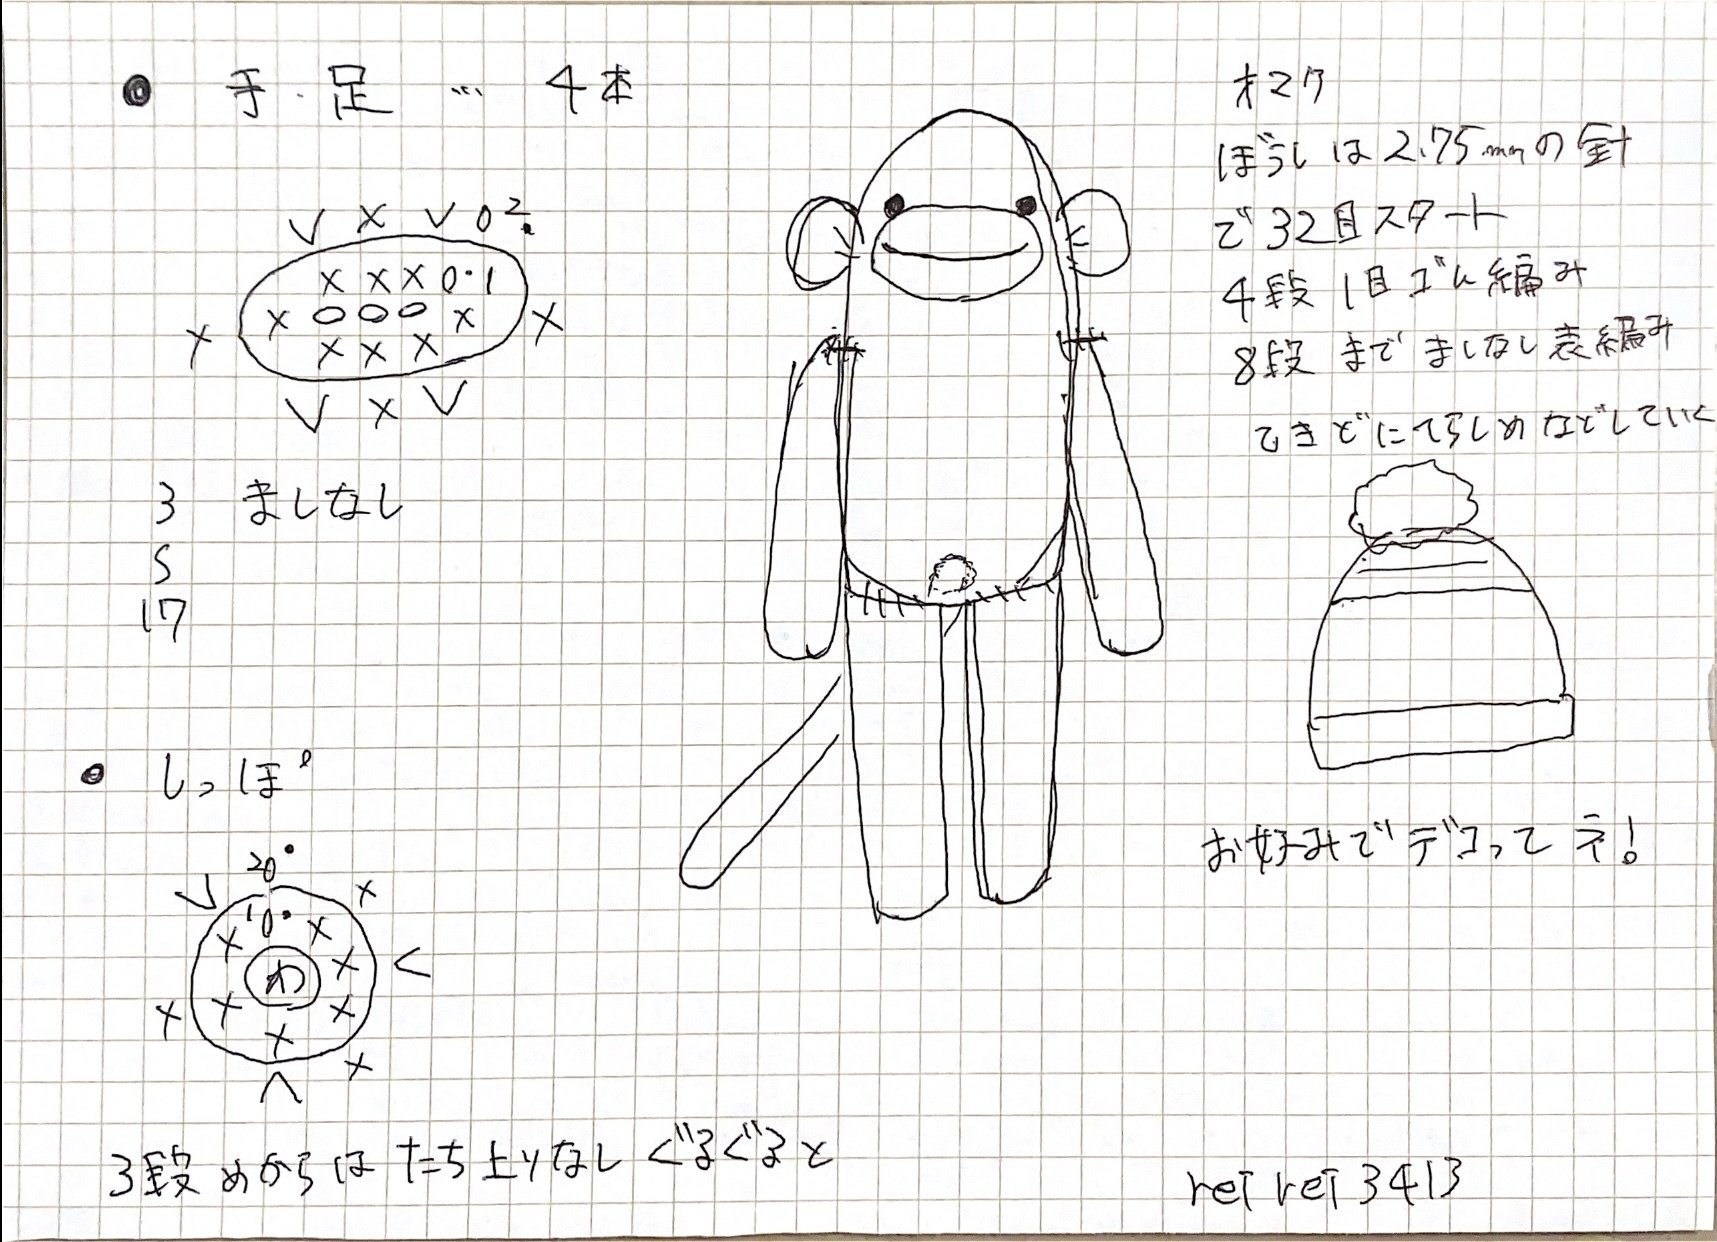 ● 手.足 … 4本
V X V 0 2.
X X X 0・1
X X 0 0 0 X X
X X X
V X V
3 ましなし
S
17
● しっぽ
20・
V X
10・
X X
わ X <
X X X
X X
Λ
3段めからは たち上りなし ぐるぐると
オマケ
ぼうしは2.75mmの針
で32目スタート
4段 1目ゴム編み
8段 まで ましなし表編み
てきどにへらしめなどしていく
お好みで デコって ネ!
rei rei 3413